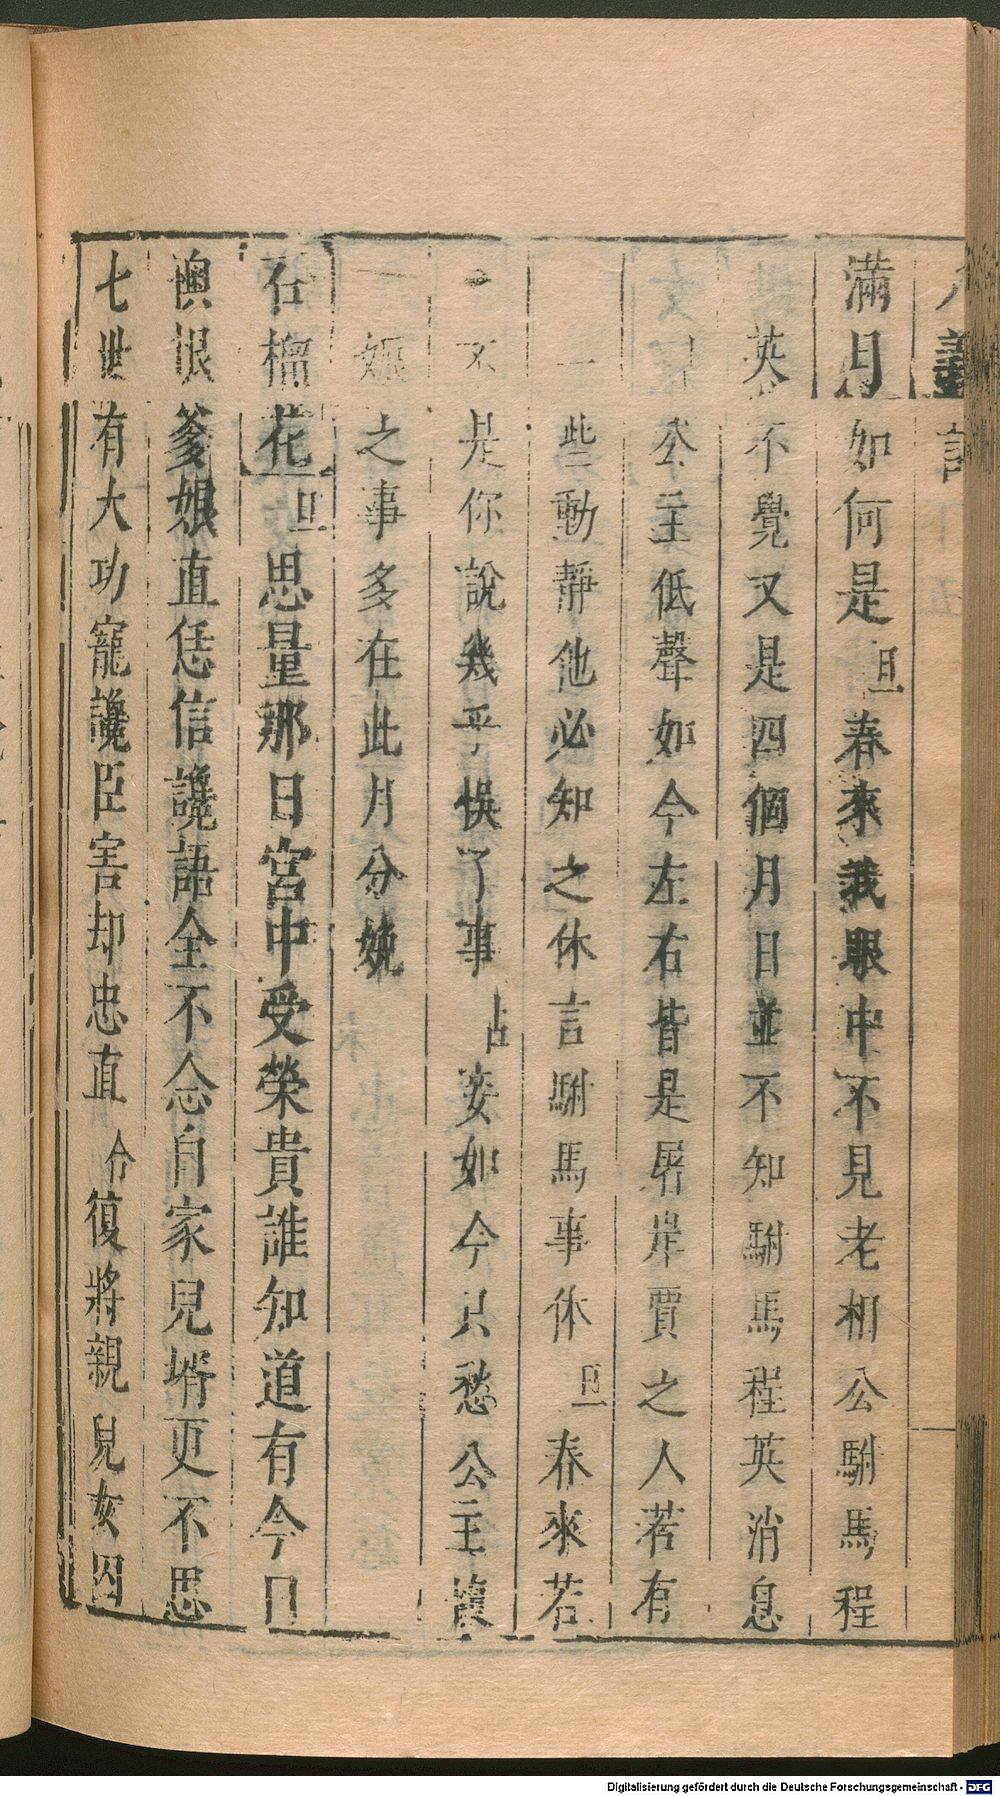 滿月如何是旦春來我眼中不見老相公駙馬程
英不覺又是四個月日並不知駙馬程英消息
公主低聲如今左右皆是屠岸賈之人若有
一些動靜他必知之休言駙馬事休旦春來若
不是你說幾乎悞了事占妾如今只愁公主懷
姬之事多在此月分娩
石榴花旦思量那日宮中受榮貴誰知道有今日
懊恨爹娘直恁信讒語全不念自家兒壻更不思
七世有大功寵讒臣害却忠直合復將親兒女囚
Digitalisierung gefördert durch die Deutsche Forschungsgemeinschaft - DFG